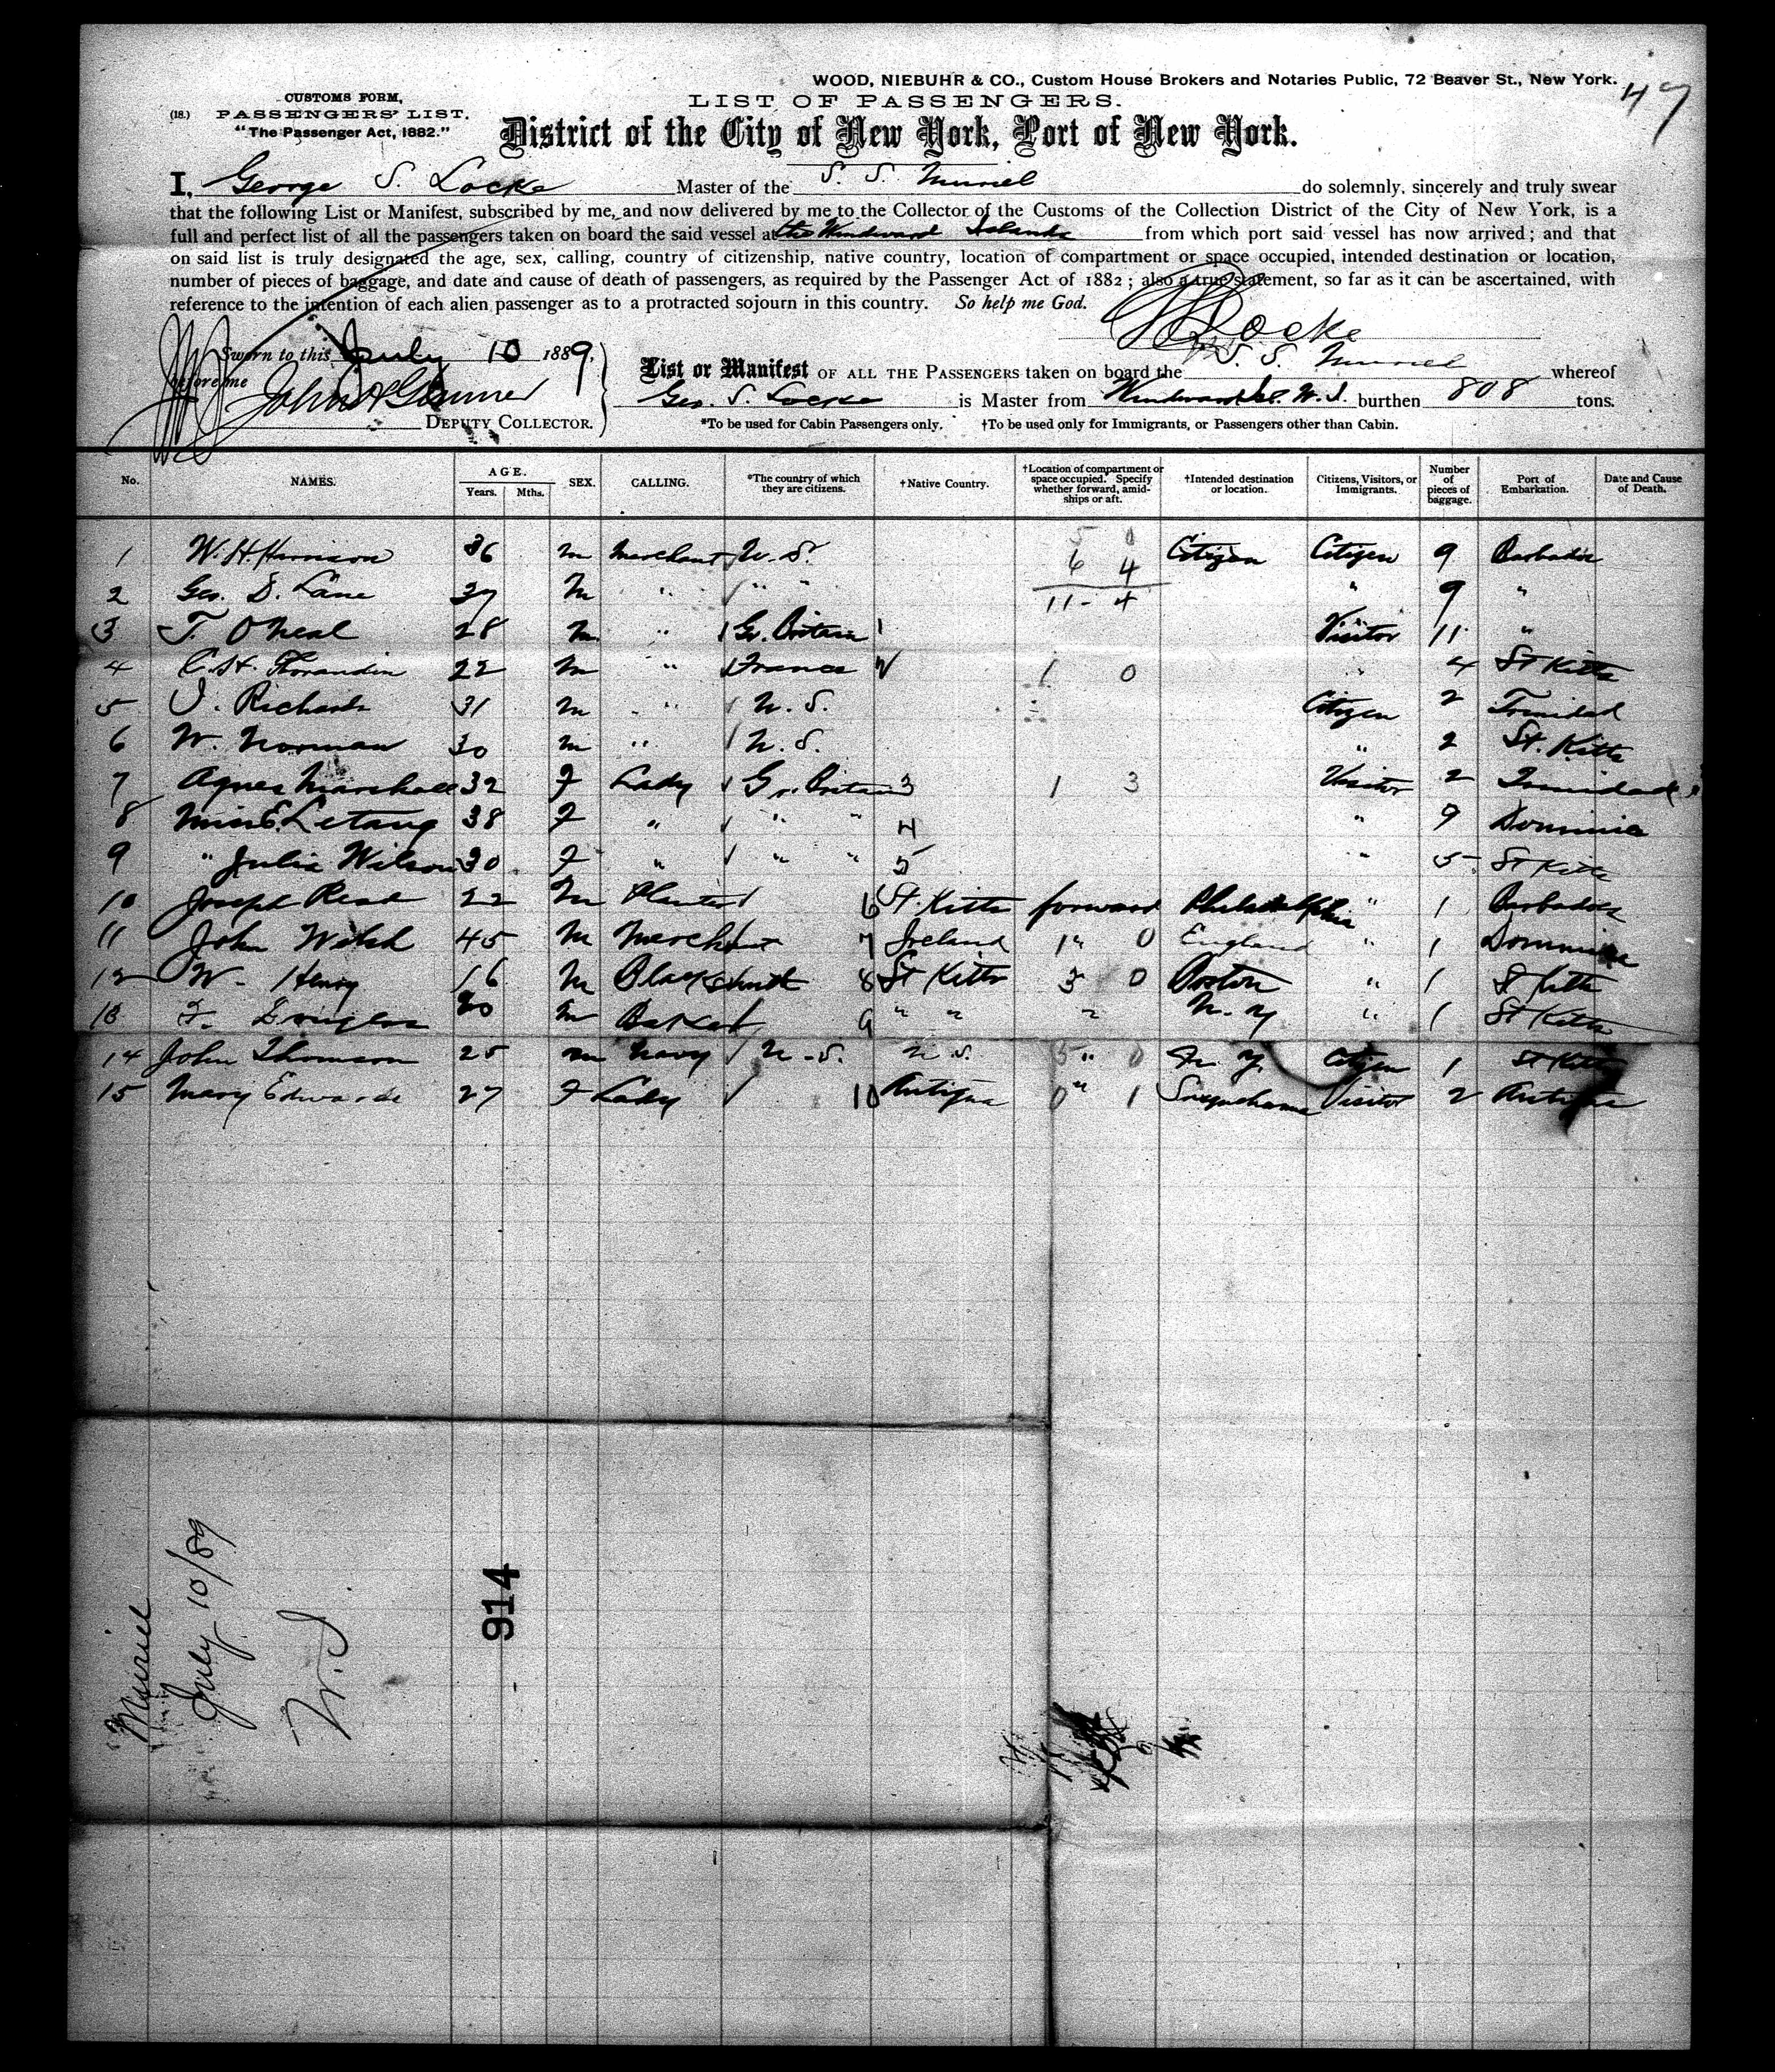 WOOD, NIEBUHR & CO., Custom House Brokers and Notaries Public, 72 Beaver St., New York.
47
CUSTOMS FORM,
(18.) PASSENGERS' LIST.
"The Passenger Act, 1882."
LIST OF PASSENGERS.
District of the City of New York, Port of New York.
I, George S. Locke Master of the S. S. Muriel do solemnly, sincerely and truly swear
that the following List or Manifest, subscribed by me, and now delivered by me to the Collector of the Customs of the Collection District of the City of New York, is a
full and perfect list of all the passengers taken on board the said vessel at the Windward Islands from which port said vessel has now arrived; and that
on said list is truly designated the age, sex, calling, country of citizenship, native country, location of compartment or space occupied, intended destination or location,
number of pieces of baggage, and date and cause of death of passengers, as required by the Passenger Act of 1882; also a true statement, so far as it can be ascertained, with
reference to the intention of each alien passenger as to a protracted sojourn in this country. So help me God.
Locke
Sworn to this July 10 1889,
before me
DEPUTY COLLECTOR.
List or Manifest OF ALL THE PASSENGERS taken on board the S. S. Muriel whereof
Geo. S. Locke is Master from Windward Isl. W. I. burthen 808 tons.
*To be used for Cabin Passengers only. †To be used only for Immigrants, or Passengers other than Cabin.
No. NAMES. AGE. Years. Mths. SEX. CALLING. *The country of which they are citizens. †Native Country. †Location of compartment or space occupied. Specify whether forward, amidships or aft. †Intended destination or location. Citizens, Visitors, or Immigrants. Number of pieces of baggage. Port of Embarkation. Date and Cause of Death.
5 0
1 W. H. Harrison 36 m Merchant U. S. 6 4 Citizen Citizen 9 Barbados
2 Geo. D. Lane 37 M " " " 11 - 4 " 9 "
3 T. O'Neal 28 M " Gr. Britain 1 Visitor 11 "
4 C. H. 22 m " France 1 0 " 4 St Kitts
5 J. Richards 31 m " U. S. Citizen 2 Trinidad
6 W. Norman 30 m " U. S. " 2 St. Kitts
7 Agnes Marshall 32 F Lady Gr. Britain 3 1 3 Visitor 2 Trinidad
8 Miss E. Letang 38 F " " " 4 " 9 Dominica
9 " Julia Wilson 30 F " " " 5 " 5 St Kitts
10 Joseph Read 22 M Planter 6 St Kitts forward Philadelphia " 1 Barbados
11 John Welsh 45 M Merchant 7 Ireland 1 " 0 England " 1 Dominica
12 W. Henry 16 M Blacksmith 8 St Kitts 3 0 Boston " 1 St Kitts
13 F. Douglas 20 m Baker 9 " " " N. Y " 1 St Kitts
14 John Thomson 25 m Navy U. S. U. S. " 0 N. Y. Citizen 1 St Kitts
15 Mary Edwards 27 F Lady 10 Antigua 0 " 1 Susquehanna Visitor 2 Antigua
Muriel
July 10/89
W. I
914